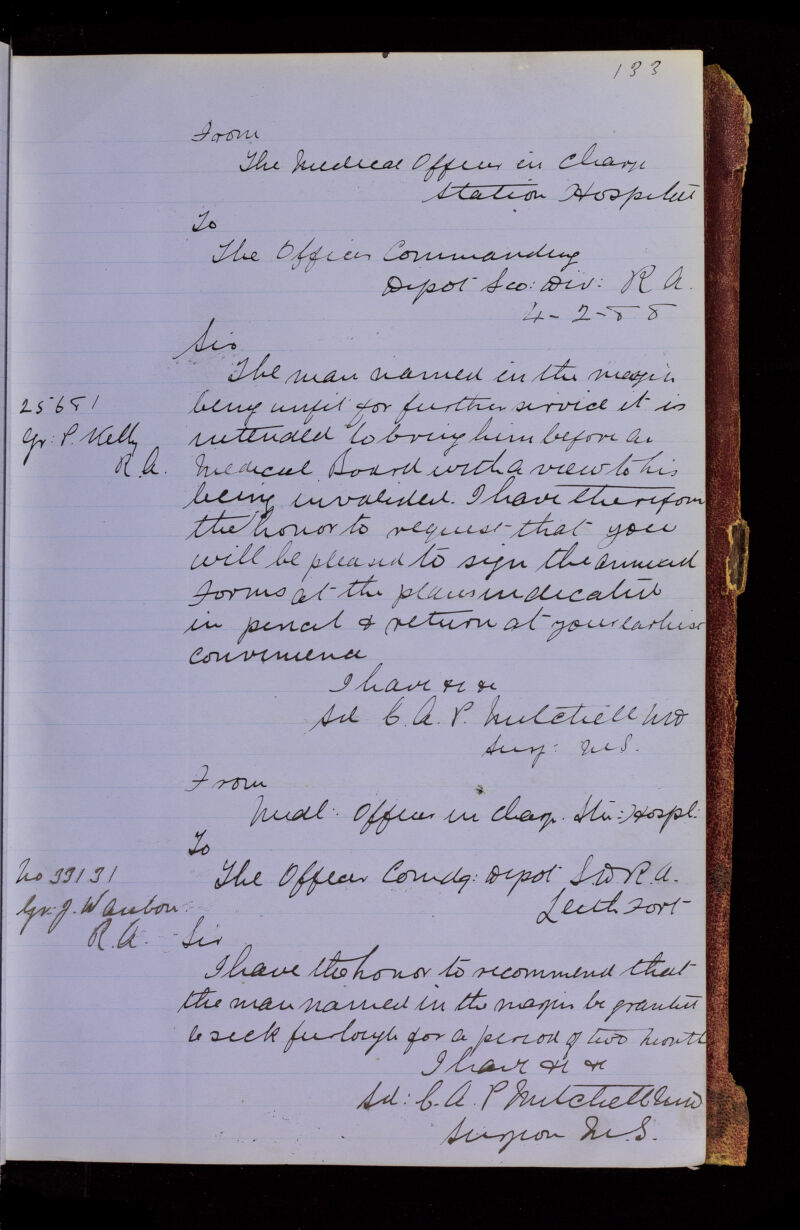 133
From
The Medical Officer in charge
Station Hospital
To
The Officer Commanding
Depot Sco: Div: R A.
4-2-88
Sir
The man named in the margin
25681
Gr: P. Kelly
R.A.
being unfit for further service it is
intended to bring him before a
Medical Board with a view to his
being invalided. I have therefore
the honor to request that you
will be pleased to sign the annexed
forms at the places indicated
in pencil & return at your earliest
convenience
I have &c &c
Sd C. A. P. Mitchell MD
Surg: M.S.
From
Medl: Officer in charge. Stn: Hospl:
To
The Officer Comdg: Depot S D R.A.
Leith Fort
No 39131
Gr: J.
R.A.
Sir
I have the honor to recommend that
the man named in the margin be granted
a sick furlough for a period of two month
I have &c &c
Sd: C. A. P Mitchell MD
Surgeon M.S.